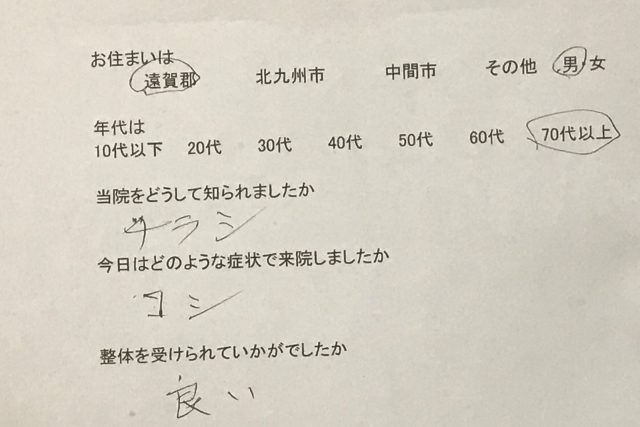 お住まいは
遠賀郡 北九州市 中間市 その他 男 女
年代は
10代以下 20代 30代 40代 50代 60代 70代以上
当院をどうして知られましたか
チラシ
今日はどのような症状で来院しましたか
コシ
整体を受けられていかがでしたか
良い